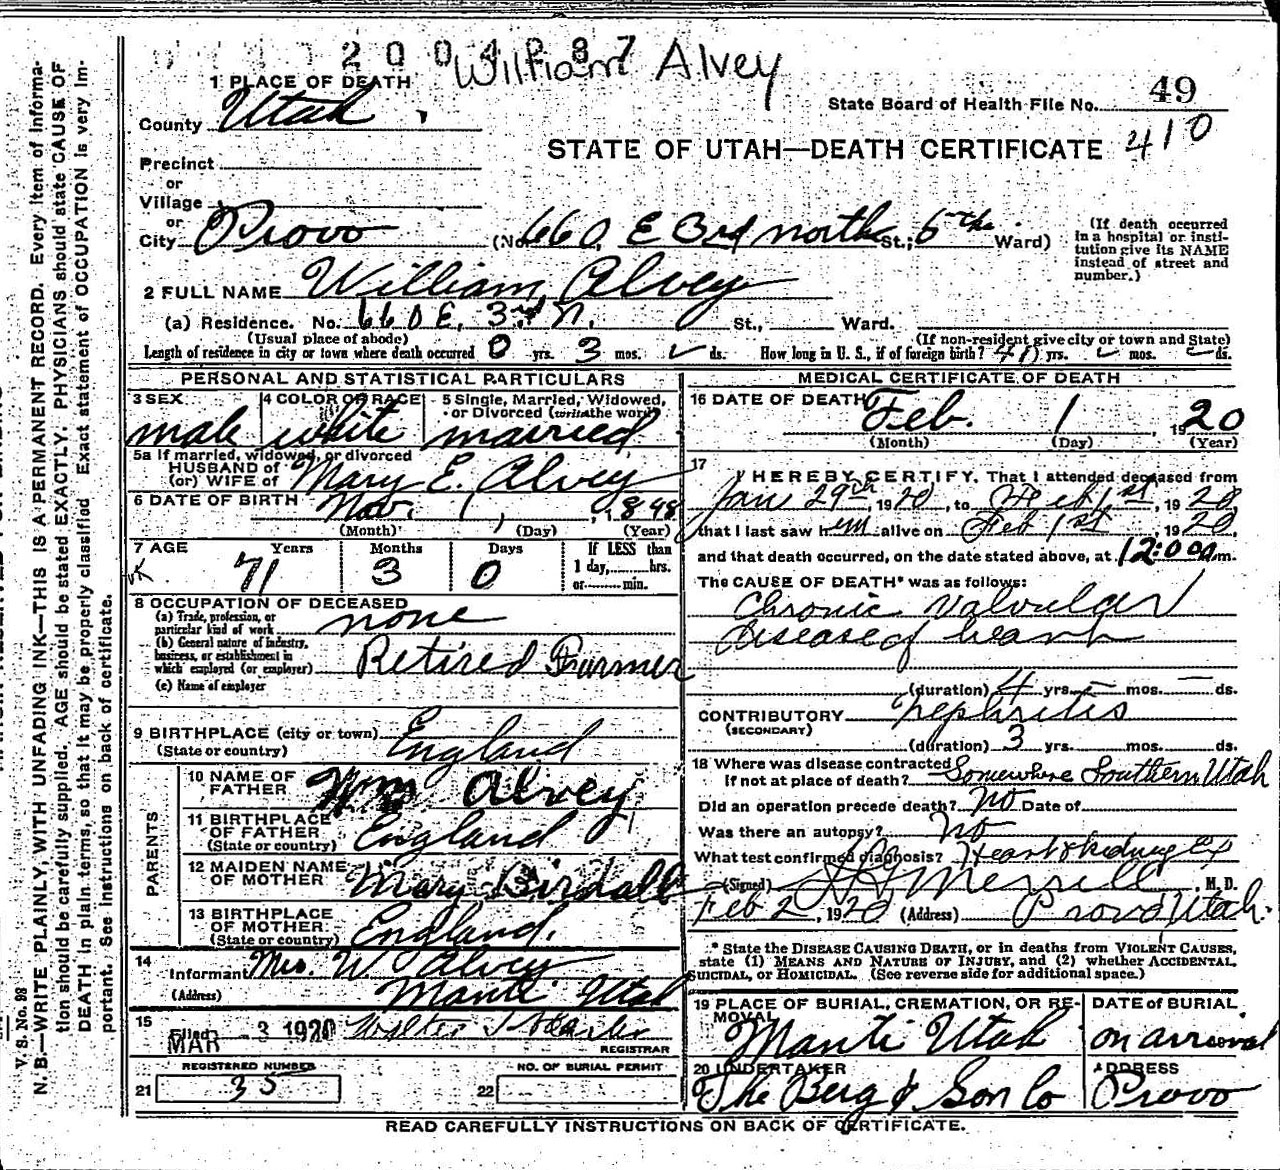 2004087 William Alvey
1 PLACE OF DEATH
County Utah
State Board of Health File No. 49
410
STATE OF UTAH—DEATH CERTIFICATE
Precinct
or
Village
or
City Provo (No. 660 E 3rd north St.; 5th Ward)
(If death occurred in a hospital or institution give its NAME instead of street and number.)
2 FULL NAME William Alvey
(a) Residence. No. 660 E. 3rd N. St., Ward.
(Usual place of abode) (If non-resident give city or town and State)
Length of residence in city or town where death occurred 0 yrs. 3 mos. ds. How long in U. S., if of foreign birth? yrs. mos. ds.
PERSONAL AND STATISTICAL PARTICULARS
3 SEX 4 COLOR OR RACE 5 Single, Married, Widowed, or Divorced (write the word)
male white married
5a If married, widowed, or divorced
HUSBAND of
(or) WIFE of Mary E. Alvey
6 DATE OF BIRTH Nov. 1, 1848
(Month) (Day) (Year)
7 AGE Years Months Days If LESS than
1 day, hrs.
or min.
71 3 0
8 OCCUPATION OF DECEASED
(a) Trade, profession, or particular kind of work none
(b) General nature of industry, business, or establishment in which employed (or employer) Retired Farmer
(c) Name of employer
9 BIRTHPLACE (city or town) England
(State or country)
PARENTS
10 NAME OF FATHER Wm Alvey
11 BIRTHPLACE OF FATHER England
(State or country)
12 MAIDEN NAME OF MOTHER Mary Birdall
13 BIRTHPLACE OF MOTHER England.
(State or country)
14 Informant Mrs. W. Alvey
(Address) Manti Utah
15 Filed MAR - 3 1920 Walter
REGISTRAR
REGISTERED NUMBER NO. OF BURIAL PERMIT
21 35 22
MEDICAL CERTIFICATE OF DEATH
16 DATE OF DEATH Feb. 1, 1920
(Month) (Day) (Year)
17 I HEREBY CERTIFY, That I attended deceased from
Jan 29th, 1920, to Feb 1st, 1920,
that I last saw him alive on Feb 1st 1920,
and that death occurred, on the date stated above, at 12:00 m.
The CAUSE OF DEATH* was as follows:
Chronic Valvular
Disease of heart
(duration) 4 yrs. – mos. – ds.
CONTRIBUTORY Nephritis
(SECONDARY)
(duration) 3 yrs. mos. ds.
18 Where was disease contracted
If not at place of death? Somewhere Southern Utah
Did an operation precede death? No Date of
Was there an autopsy? No
What test confirmed diagnosis? Heart & kidney Ex
(Signed) Merrill, M. D.
Feb 2, 1920 (Address) Provo Utah.
* State the DISEASE CAUSING DEATH, or in deaths from VIOLENT CAUSES,
state (1) MEANS AND NATURE OF INJURY, and (2) whether ACCIDENTAL,
SUICIDAL, or HOMICIDAL. (See reverse side for additional space.)
19 PLACE OF BURIAL, CREMATION, OR REMOVAL DATE of BURIAL
Manti Utah on arrival
20 UNDERTAKER ADDRESS
The Berg & Son Co Provo
READ CAREFULLY INSTRUCTIONS ON BACK OF CERTIFICATE.
V. S. No. 98
N. B.—WRITE PLAINLY, WITH UNFADING INK—THIS IS A PERMANENT RECORD. Every item of informa-
tion should be carefully supplied. AGE should be stated EXACTLY. PHYSICIANS should state CAUSE OF
DEATH in plain terms, so that it may be properly classified. Exact statement of OCCUPATION is very im-
portant. See instructions on back of certificate.